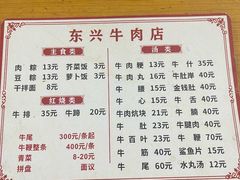 东兴牛肉店
主食类
肉粽 13元 芥菜饭 3元
豆粽 13元 萝卜饭 3元
干拌面 8元
红烧类
牛排 35元 牛蹄 20元
牛尾 300元/条起
牛鞭整条 400元/条
青菜 8-20元
拼盘 面议
汤类
牛肉粳 13元 牛什 35元
牛肉丸 16元 牛肚岸 40元
牛腱 金钱肚 40元
牛心 牛舌 40元
牛肉炕块 21元 牛腩 40元
牛肚 23元 牛腱 40元
牛百叶 23元 牛鞭 70元
牛筋 40元 鲨鱼片 15元
牛尾 60元 水丸汤 12元